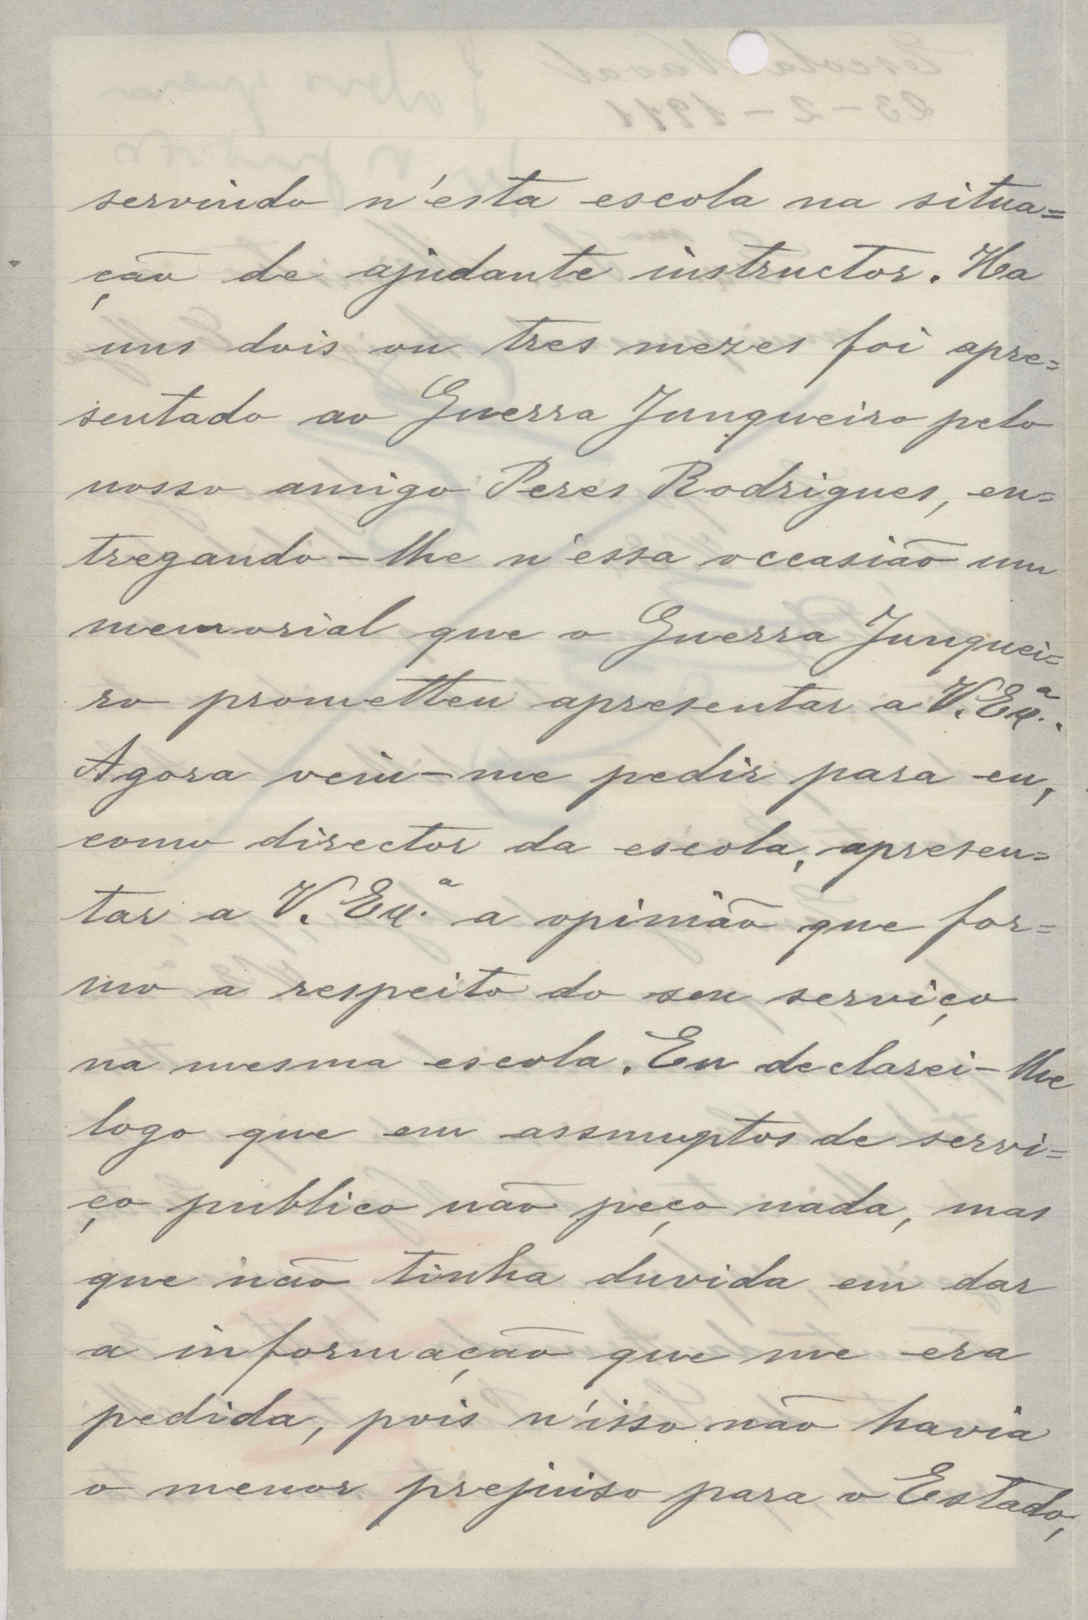 servindo n'esta escola na situa=
ção de ajudante instructor. Ha
uns dois ou tres mezes foi apre=
sentado ao Guerra Junqueiro pelo
nosso amigo Peres Rodrigues, en=
tregando-lhe n'essa occasião um
memorial que o Guerra Junquei=
ro prometteu apresentar a V. Exª.
Agora veiu-me pedir para eu,
como director da escola, apresen=
tar a V. Ex.ª a opinião que for=
mo a respeito do seu serviço
na mesma escola. Eu declarei-lhe
logo que em assumptos de servi=
ço publico não peço nada, mas
que não tinha duvida em dar
a informação que me era
pedida, pois n'isso não havia
o menor prejuiso para o Estado,